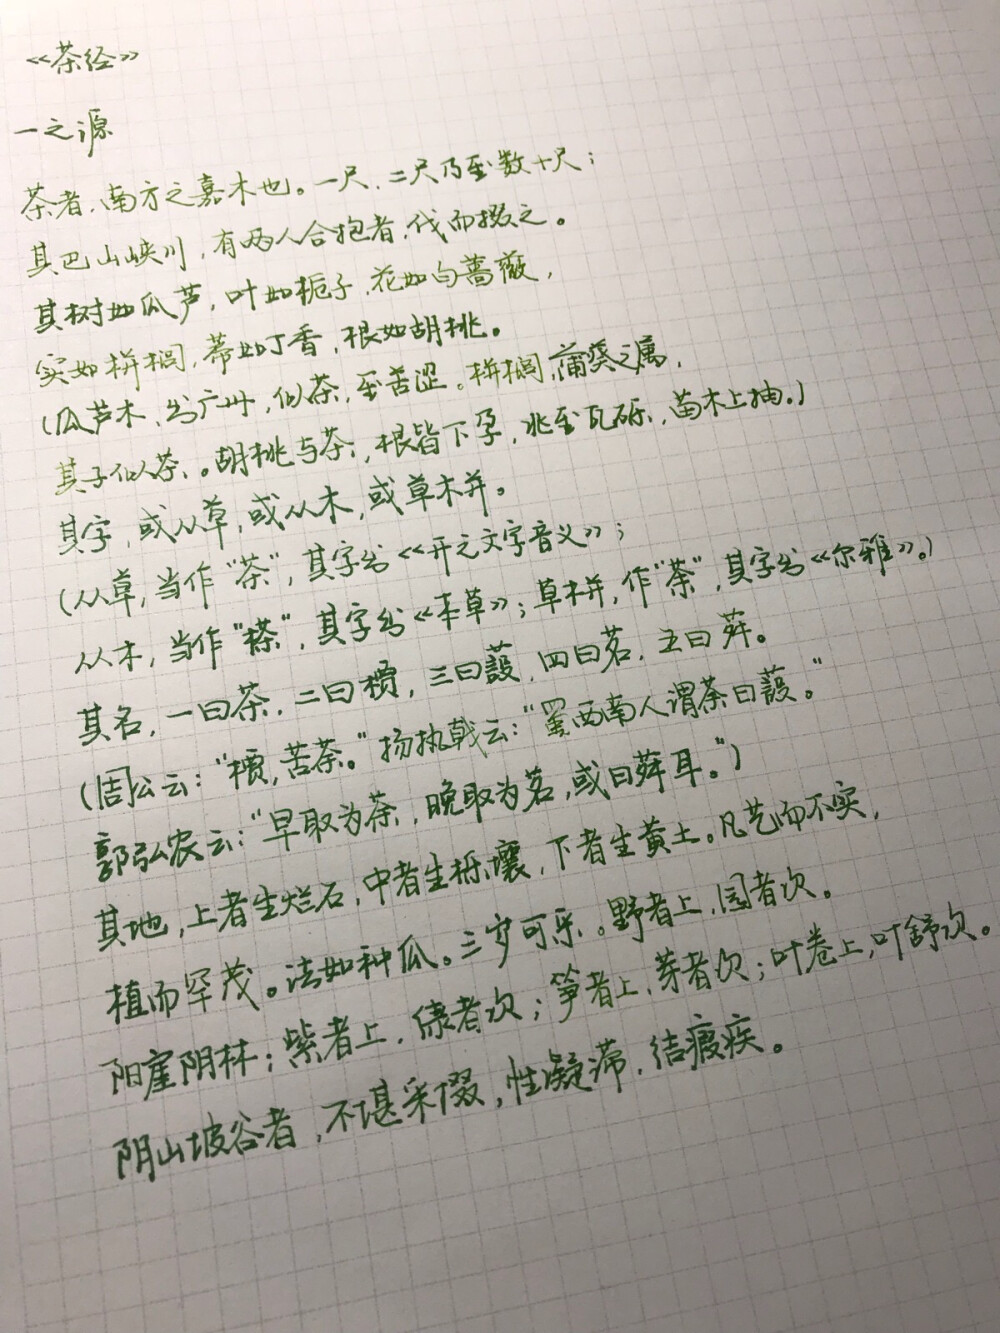 《茶经》
一之源
茶者、南方之嘉木也。一尺、二尺乃至数十尺；
其巴山峡川，有两人合抱者，伐而掇之。
其树如瓜芦，叶如栀子，花如白蔷薇，
实如栟榈，蒂如丁香，根如胡桃。
（瓜芦木，出广州，似茶，至苦涩。栟榈，蒲葵之属，
其子似茶。胡桃与茶，根皆下孕，兆至瓦砾，苗木上抽。）
其字，或从草，或从木，或草木并。
（从草，当作“茶”，其字出《开元文字音义》；
从木，当作“搽”，其字出《本草》；草木并，作“荼”，其字出《尔雅》。）
其名，一曰茶，二曰槚，三曰蔎，四曰茗，五曰荈。
（周公云：“槚，苦荼。”扬执戟云：“蜀西南人谓茶曰蔎。”
郭弘农云：“早取为茶，晚取为茗，或曰荈耳。”）
其地，上者生烂石，中者生栎壤，下者生黄土。凡艺而不实，
植而罕茂。法如种瓜。三岁可采。野者上，园者次。
阳崖阴林；紫者上，绿者次；笋者上，芽者次；叶卷上，叶舒次。
阴山坡谷者，不堪采掇，性凝滞，结瘕疾。